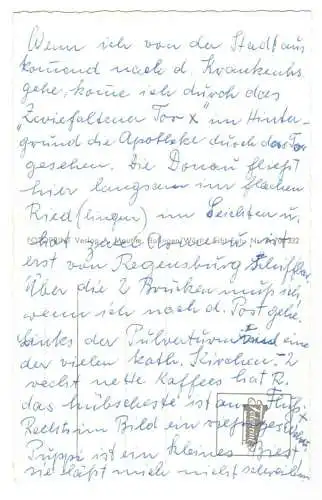 Wenn ich von der Stadt aus
komend nach d. Krankenhs.
gehe, kome ich durch das
"Zwiefaltener Tor x" im Hinter-
grund die Apotheke durch das Tor
gesehen. Die Donau fließt
hier langsam im flachen
Ried(lingen) im Seichten u.
ist
erst von Regensburg schiffbar
Über die 2 Brücken muß ich,
wenn ich nach d. Post gehe.
Links der Pulverturm und eine
der vielen kath. Kirchen. 2
recht nette Kaffees hat R.
das hübscheste ist am Fluß x
Rechts im Bild ein
Puppi ist ein kleines Biest
sie läßt mich nicht schreiben